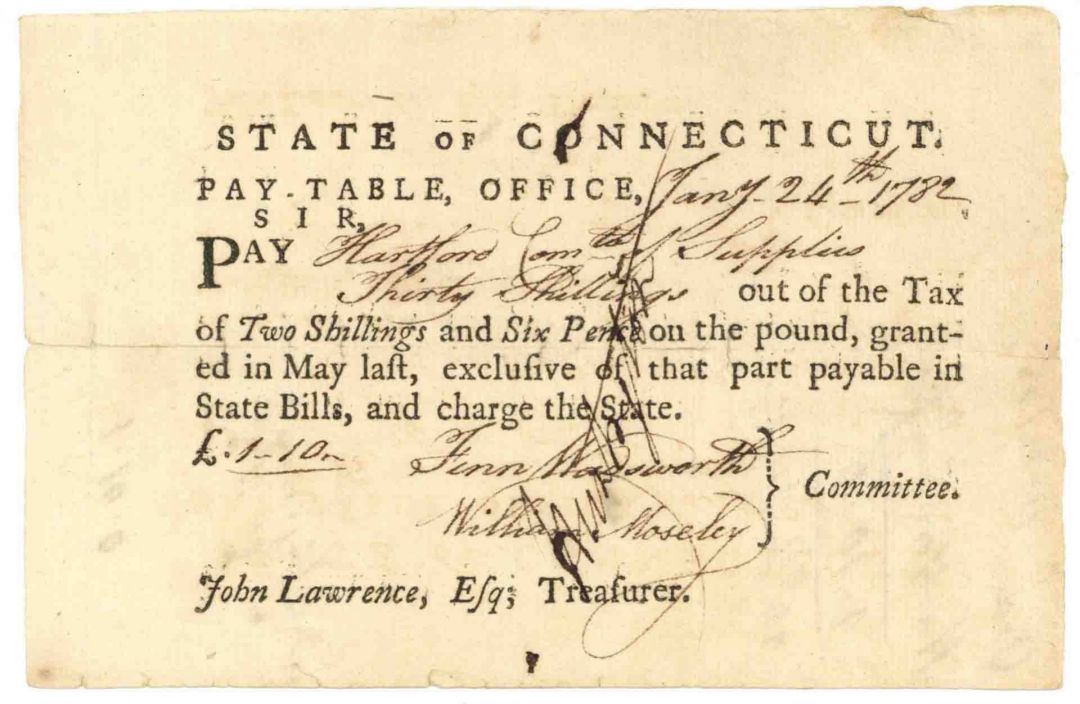 STATE OF CONNECTICUT.
PAY-TABLE, OFFICE, Jany. 24th 1782
SIR,
PAY Hartford Comte of Supplies
Thirty Shillings out of the Tax
of Two Shillings and Six Pence on the pound, grant-
ed in May laſt, excluſive of that part payable in
State Bills, and charge the State.
£. 1-10-
Fenn Wadsworth
William Moseley
Committee.
John Lawrence, Eſq; Treaſurer.